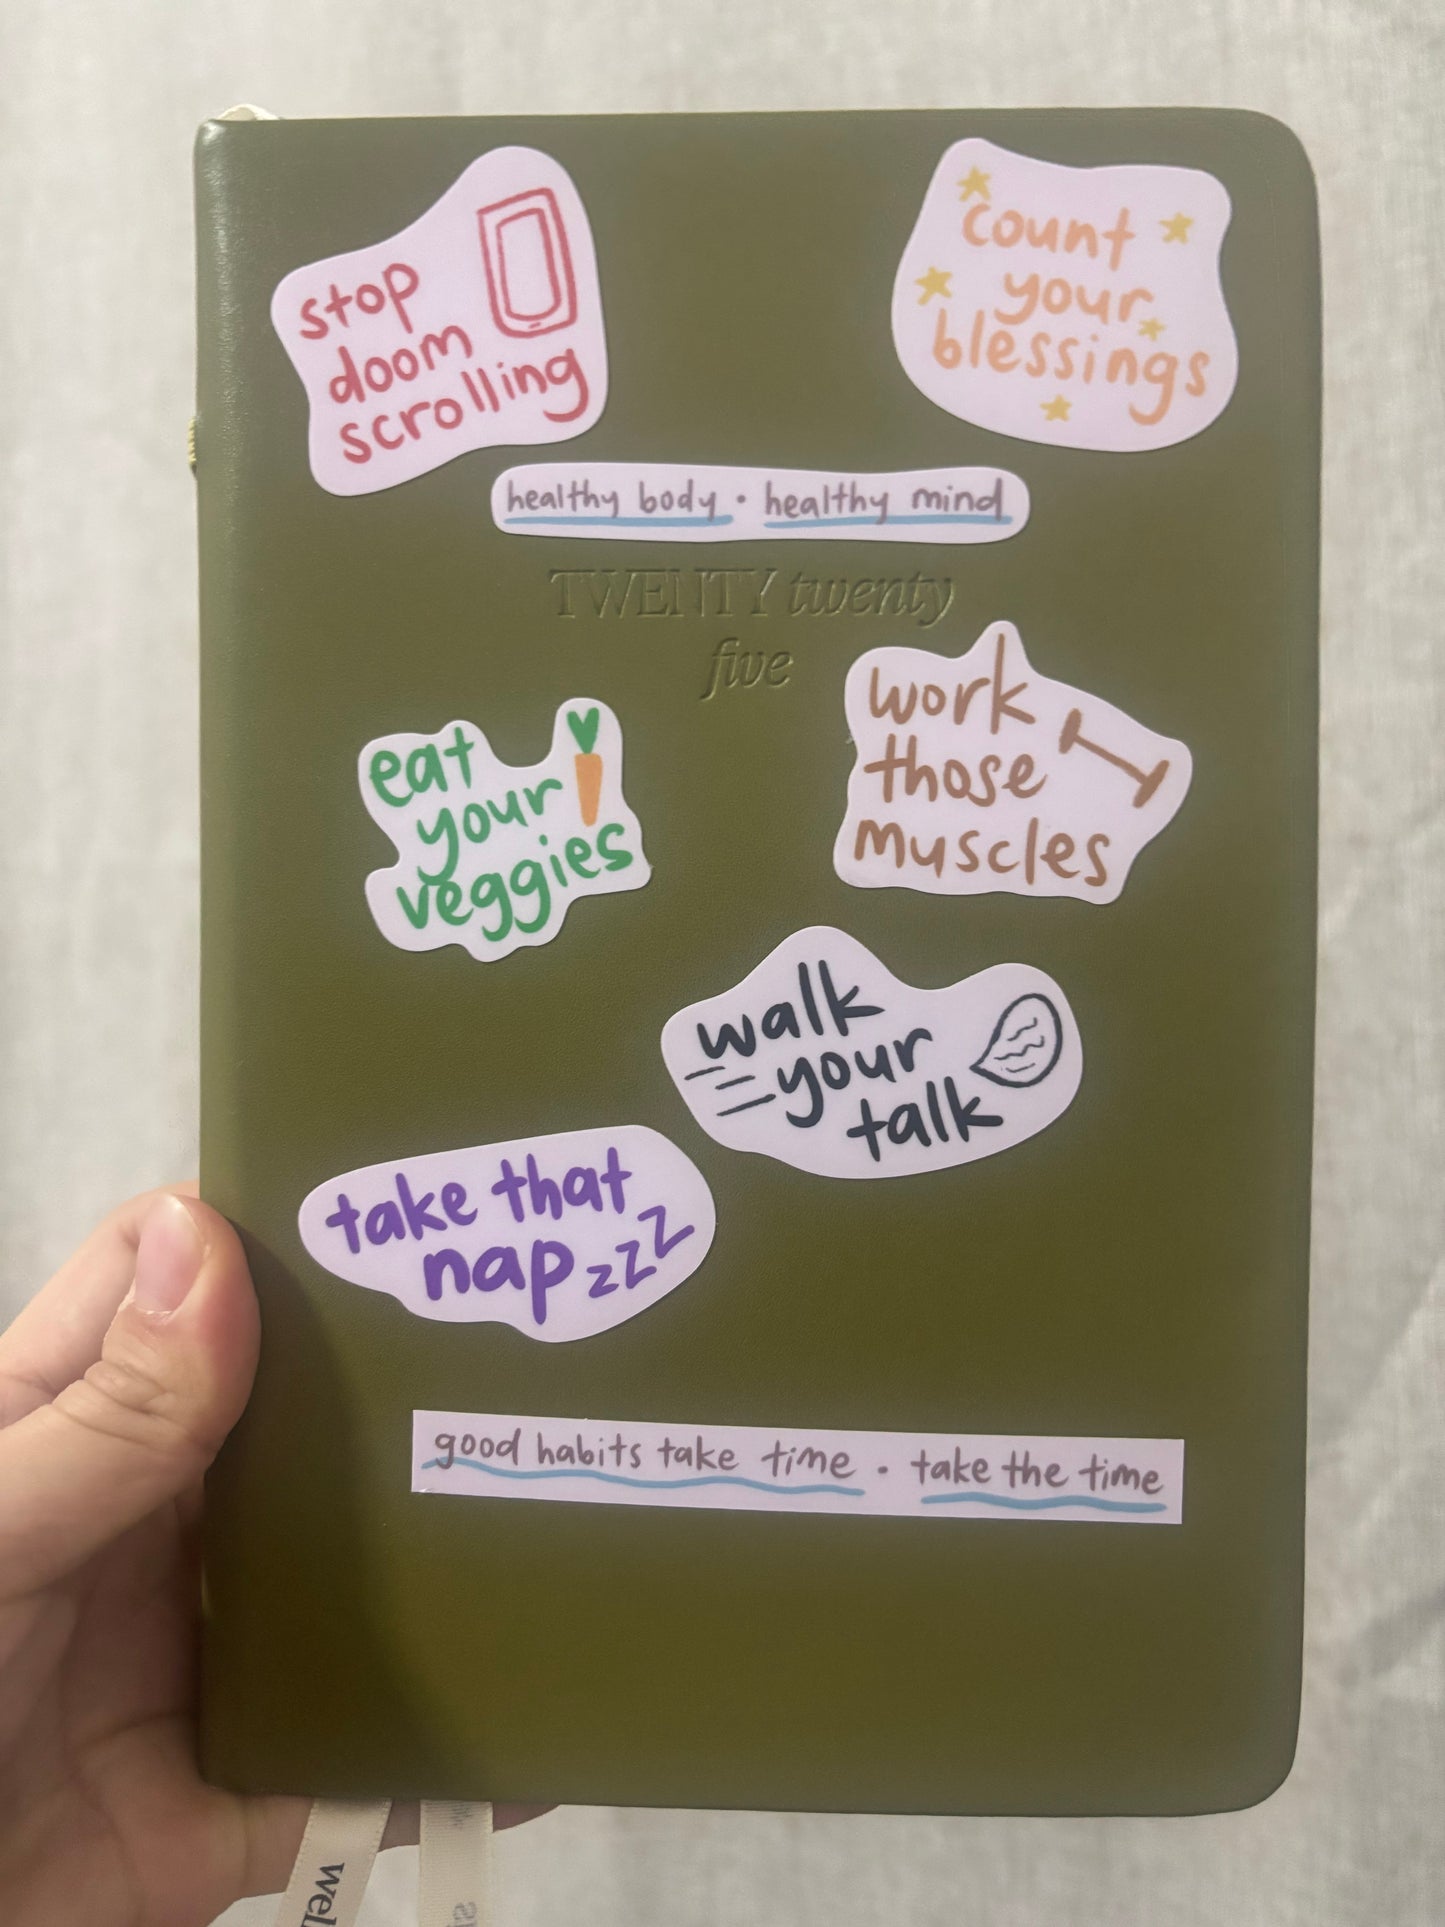 stop
doom
scrolling
count
your
blessings
healthy body • healthy mind
TWENTY twenty
five
eat
your
veggies
work
those
muscles
walk
your
talk
take that
nap zzz
good habits take time • take the time